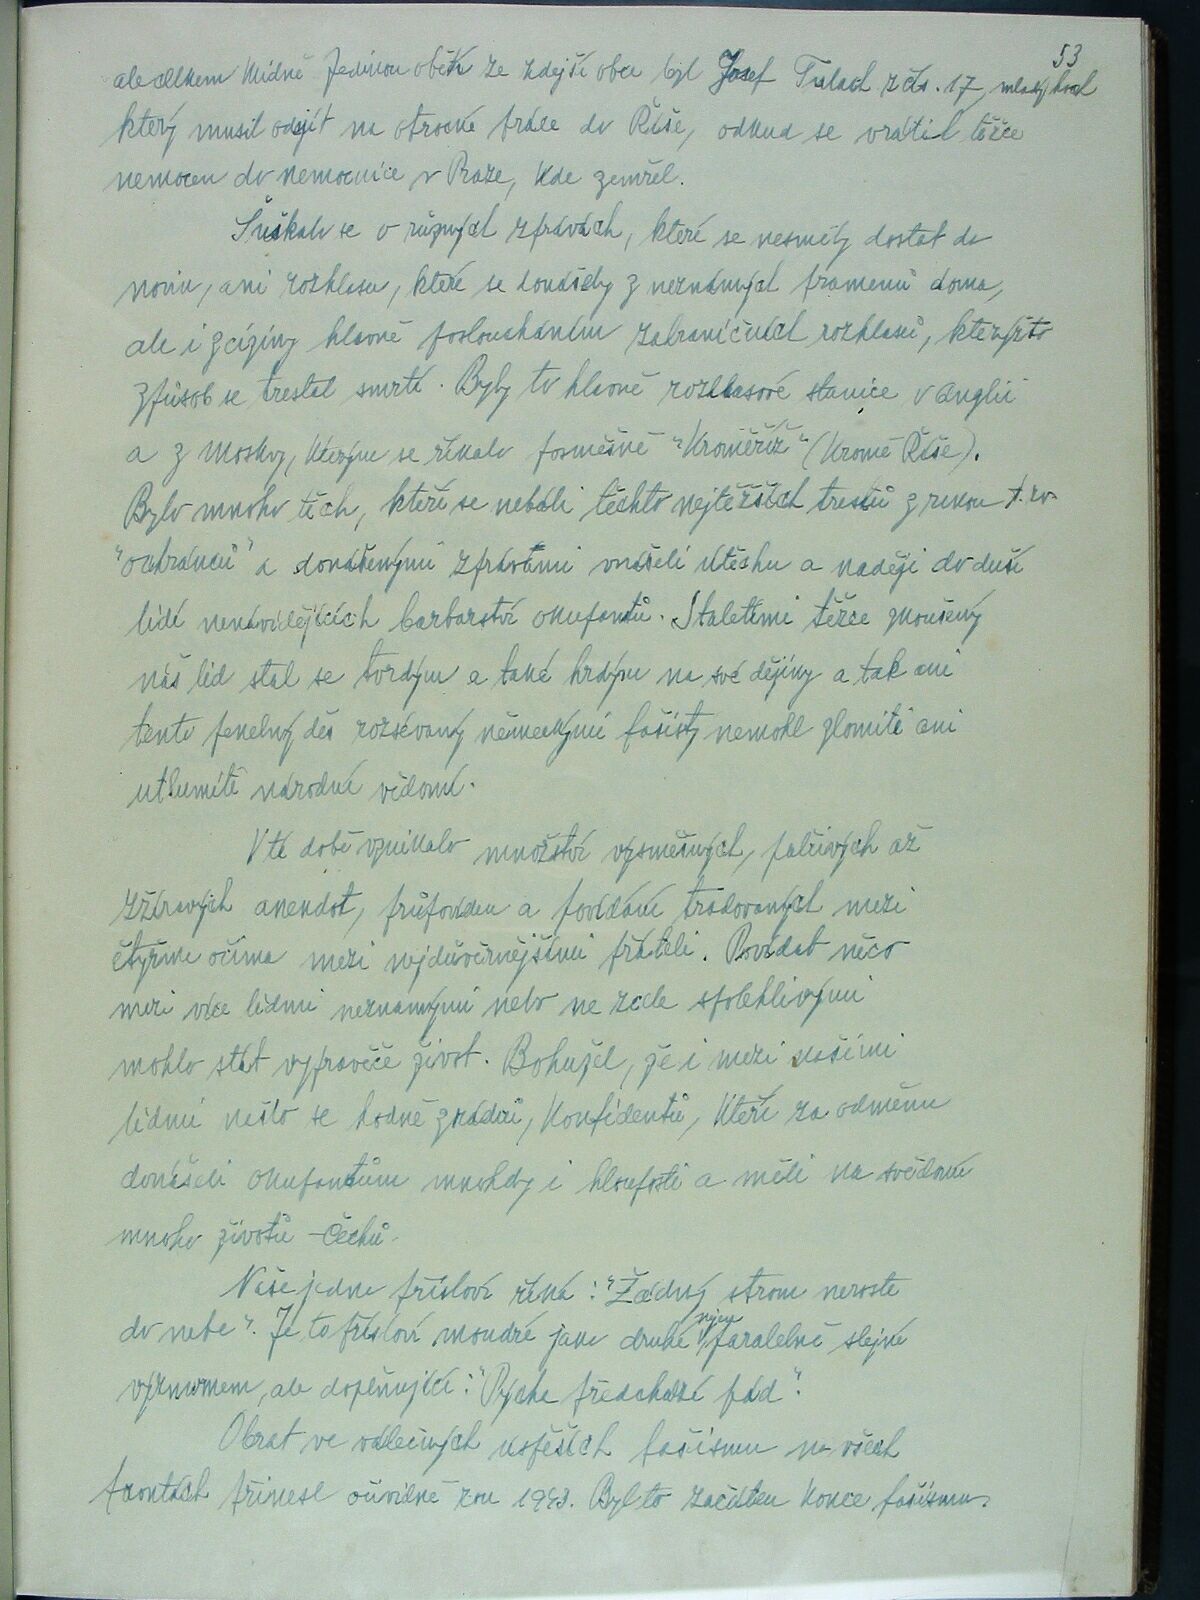 53
ale celkem klidně. Jedinou obětí ze zdejší obce byl Josef Tulach z čís. 17, mladý hoch
který musil odejít na otrocké práce do Říše, odkud se vrátil těžce
nemocen do nemocnice v Praze, kde zemřel.
Šuškalo se o různých zprávách, které se nesměly dostat do
novin, ani rozhlasu, které se donášely z neznámých pramenů doma,
ale i z ciziny hlavně posloucháním zahraničních rozhlasů, kterýžto
způsob se trestal smrtí. Byly to hlavně rozhlasové stanice v Anglii
a z Moskvy, kterým se říkalo posměšně "Kroměříž" (Kromě Říše).
Bylo mnoho těch, kteří se nebáli těchto nejtěžších trestů z rukou t.zv.
"ochránců" a donášenými zprávami vnášeli útěchu a naději do duší
lidí nenávidějících barbarství okupantů. Staletími těžce zkoušený
náš lid stal se tvrdým a také hrdým na své dějiny a tak ani
tento pekelný děs rozsévaný německými fašisty nemohl zlomiti ani
utlumiti národní vědomí.
V té době vznikalo množství výsměšných, palčivých až
žíravých anekdot, průpovídek a povídání tradovaných mezi
čtyřma očima mezi nejdůvěrnějšími přáteli. Povídat něco
mezi více lidmi neznámými nebo ne zcela spolehlivými
mohlo stát vypravěče život. Bohužel, že i mezi našimi
lidmi našlo se hodně zrádců, konfidentů, kteří za odměnu
donášeli okupantům mnohdy i hlouposti a měli na svědomí
mnoho životů Čechů.
Naše jedno přísloví říká: "Žádný strom neroste
do nebe". Je to přísloví moudré jako druhé nejen paralelně stejné
významem, ale doplňující: "Pýcha předchází pád".
Obrat ve válečných úspěších fašismu na všech
frontách přinesl očividně rok 1943. Byl to začátek konce fašismu.